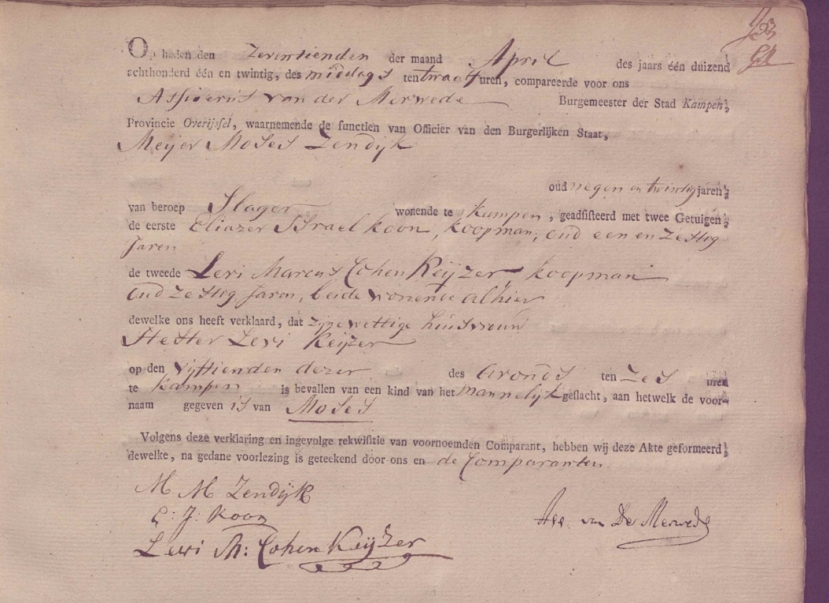 Op heden den zeventienden der maand April des jaars één duizend
achthonderd één en twintig, des middags ten twaalf uren, compareerde voor ons
Assuerus van der Merwede Burgemeester der Stad Kampen,
Provincie Overijssel, waarnemende de functien van Officier van den Burgerlijken Staat,
Meijer Moses Zendijk
oud negen en twintig jaren,
van beroep Slager wonende te Kampen, geadsisteerd met twee Getuigen,
de eerste Eliazer Israel Koon, koopman, oud een en zestig
Jaren
de tweede Levi Marcus Cohen Keijzer, koopman
oud zestig Jaren, beide wonende alhier
dewelke ons heeft verklaard, dat zijne wettige huisvrouw
Hester Levi Keijzer
op den vijftienden dezer des avonds ten zes uren
te Kampen is bevallen van een kind van het mannelijk geslacht, aan hetwelk de voor-
naam gegeven is van Moses
Volgens deze verklaring en ingevolge rekwisitie van voornoemden Comparant, hebben wij deze Akte geformeerd,
dewelke, na gedane voorlezing is geteekend door ons en de Comparanten
M M Zendijk
E: J: Koon
Levi M: Cohen Keijzer
Ass van der Merwede